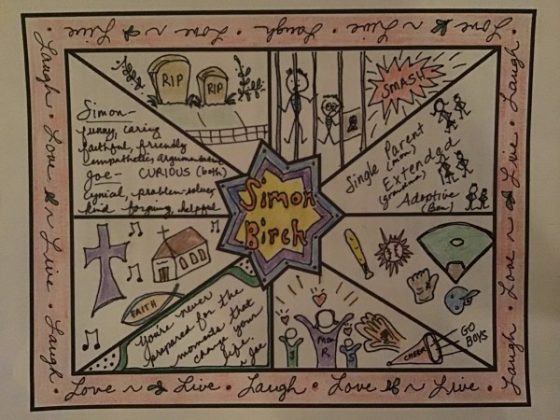 Live Love Laugh Live Love
Laugh • Love Live • Laugh
Laugh Live Love Laugh
RIP
RIP
SMASH
Simon-
funny, caring
faithful, friendly
empathetic, argumentative
CURIOUS (both)
Joe-
cynical, problem-solver,
kind forgiving, helpful
Single Parent
(mom)
Extended
(grandma)
Adoptive
(Ben)
Simon
Birch
FAITH
You're never
prepared for the
moments that
change your
life.
~ Joe
R.
CHEER
GO
BOYS
Love Live • Laugh • Love Live •